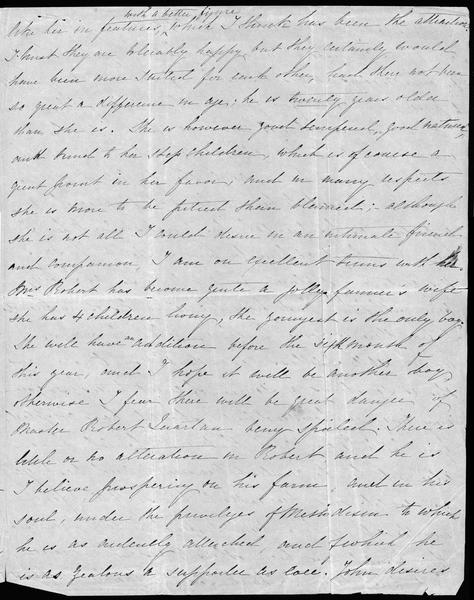 with a better figure
like her in features, which I think has been the attraction
I trust they are tolerably happy but they certainly would
have been more suited for each other, had there not been
so great a difference in age: he is twenty years older
than she is. She is however good tempered, good natured,
and kind to her step children, which is of course a
great point in her favor, and in many respects
she is more to be pitied than blamed; although
she is not all I could desire in an intimate friend
and companion, I am on excellent terms with her
Mrs Robert has become quite a jolly farmer's wife
she has 4 children living, the youngest is the only boy
She will have an addition before the sixth month of
this year, and I hope it will be another boy
otherwise I fear there will be great danger of
Master Robert Quartan being spoiled. There is
little or no alteration in Robert and he is
I believe prospering on his farm and in his
soul, under the privileges of Methodism to which
he is as ardently attached, and of which he
is as zealous a supporter as ever. John desires